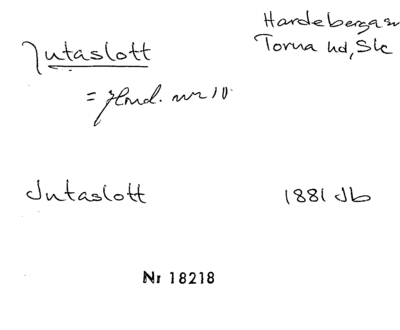 Hardeberga sn
Torna hd, Skå
Jutaslott
= Hmd. nr 10
Jutaslott 1881 Jb
Nr 18218